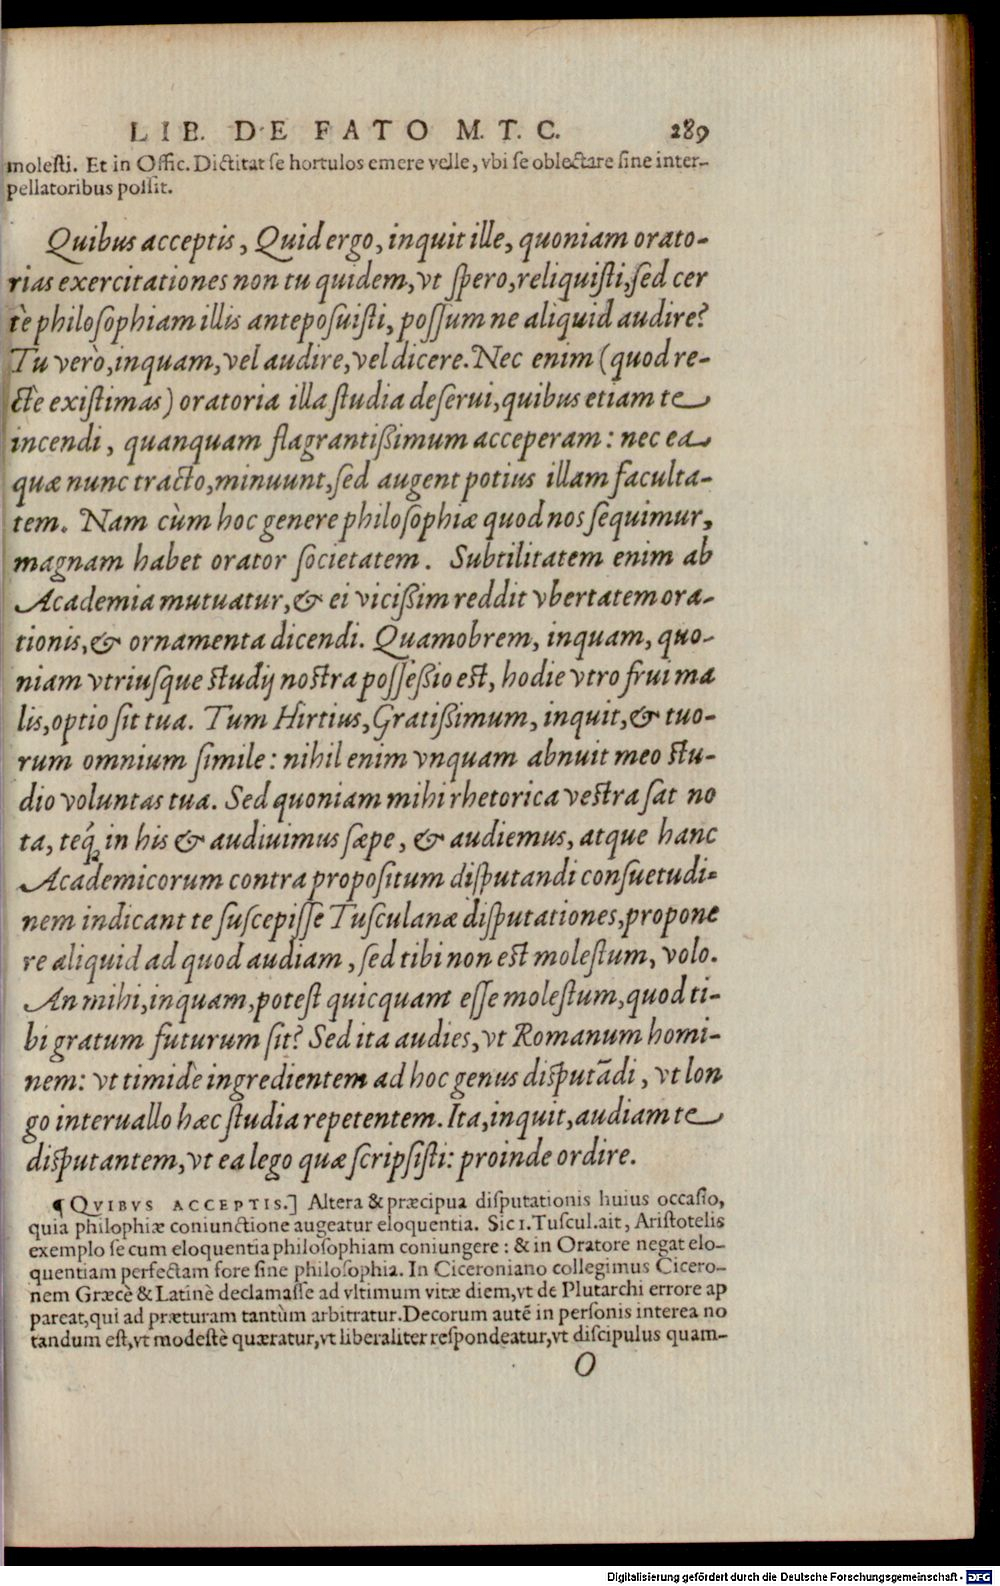 LIB. DE FATO M. T. C. 289
molesti. Et in Offic. Dictitat se hortulos emere velle, vbi se oblectare sine inter-
pellatoribus possit.
Quibus acceptis, Quid ergo, inquit ille, quoniam orato-
rias exercitationes non tu quidem, vt spero, reliquisti, sed cer
tè philosophiam illis anteposuisti, possum ne aliquid audire?
Tu verò, inquam, vel audire, vel dicere. Nec enim (quod re-
ctè existimas) oratoria illa studia deserui, quibus etiam te
incendi, quanquam flagrantißimum acceperam: nec ea
quæ nunc tracto, minuunt, sed augent potius illam faculta-
tem. Nam cùm hoc genere philosophiæ quod nos sequimur,
magnam habet orator societatem. Subtilitatem enim ab
Academia mutuatur, & ei vicißim reddit vbertatem ora-
tionis, & ornamenta dicendi. Quamobrem, inquam, quo-
niam vtriusque studij nostra possèßio est, hodie vtro frui ma
lis, optio sit tua. Tum Hirtius, Gratißimum, inquit, & tuo-
rum omnium simile: nihil enim vnquam abnuit meo stu-
dio voluntas tua. Sed quoniam mihi rhetorica vestra sat no
ta, teq́ue in his & audiuimus sæpe, & audiemus, atque hanc
Academicorum contra propositum disputandi consuetudi=
nem indicant te suscepisse Tusculanæ disputationes, propone
re aliquid ad quod audiam, sed tibi non est molestum, volo.
An mihi, inquam, potest quicquam esse molestum, quod ti-
bi gratum futurum sit? Sed ita audies, vt Romanum homi-
nem: vt timidè ingredientem ad hoc genus disputãdi, vt lon
go interuallo hæc studia repetentem. Ita, inquit, audiam te
disputantem, vt ea lego quæ scripsisti: proinde ordire.
¶ QVIBVS ACCEPTIS.] Altera & præcipua disputationis huius occasio,
quia philophiæ coniunctione augeatur eloquentia. Sic 1. Tuscul. ait, Aristotelis
exemplo se cum eloquentia philosophiam coniungere: & in Oratore negat elo-
quentiam perfectam fore sine philosophia. In Ciceroniano collegimus Cicero-
nem Græcè & Latinè declamasse ad vltimum vitæ diem, vt de Plutarchi errore ap
pareat, qui ad præturam tantùm arbitratur. Decorum autẽ in personis interea no
tandum est, vt modestè quæratur, vt liberaliter respondeatur, vt discipulus quam-
O
Digitalisierung gefördert durch die Deutsche Forschungsgemeinschaft - DFG